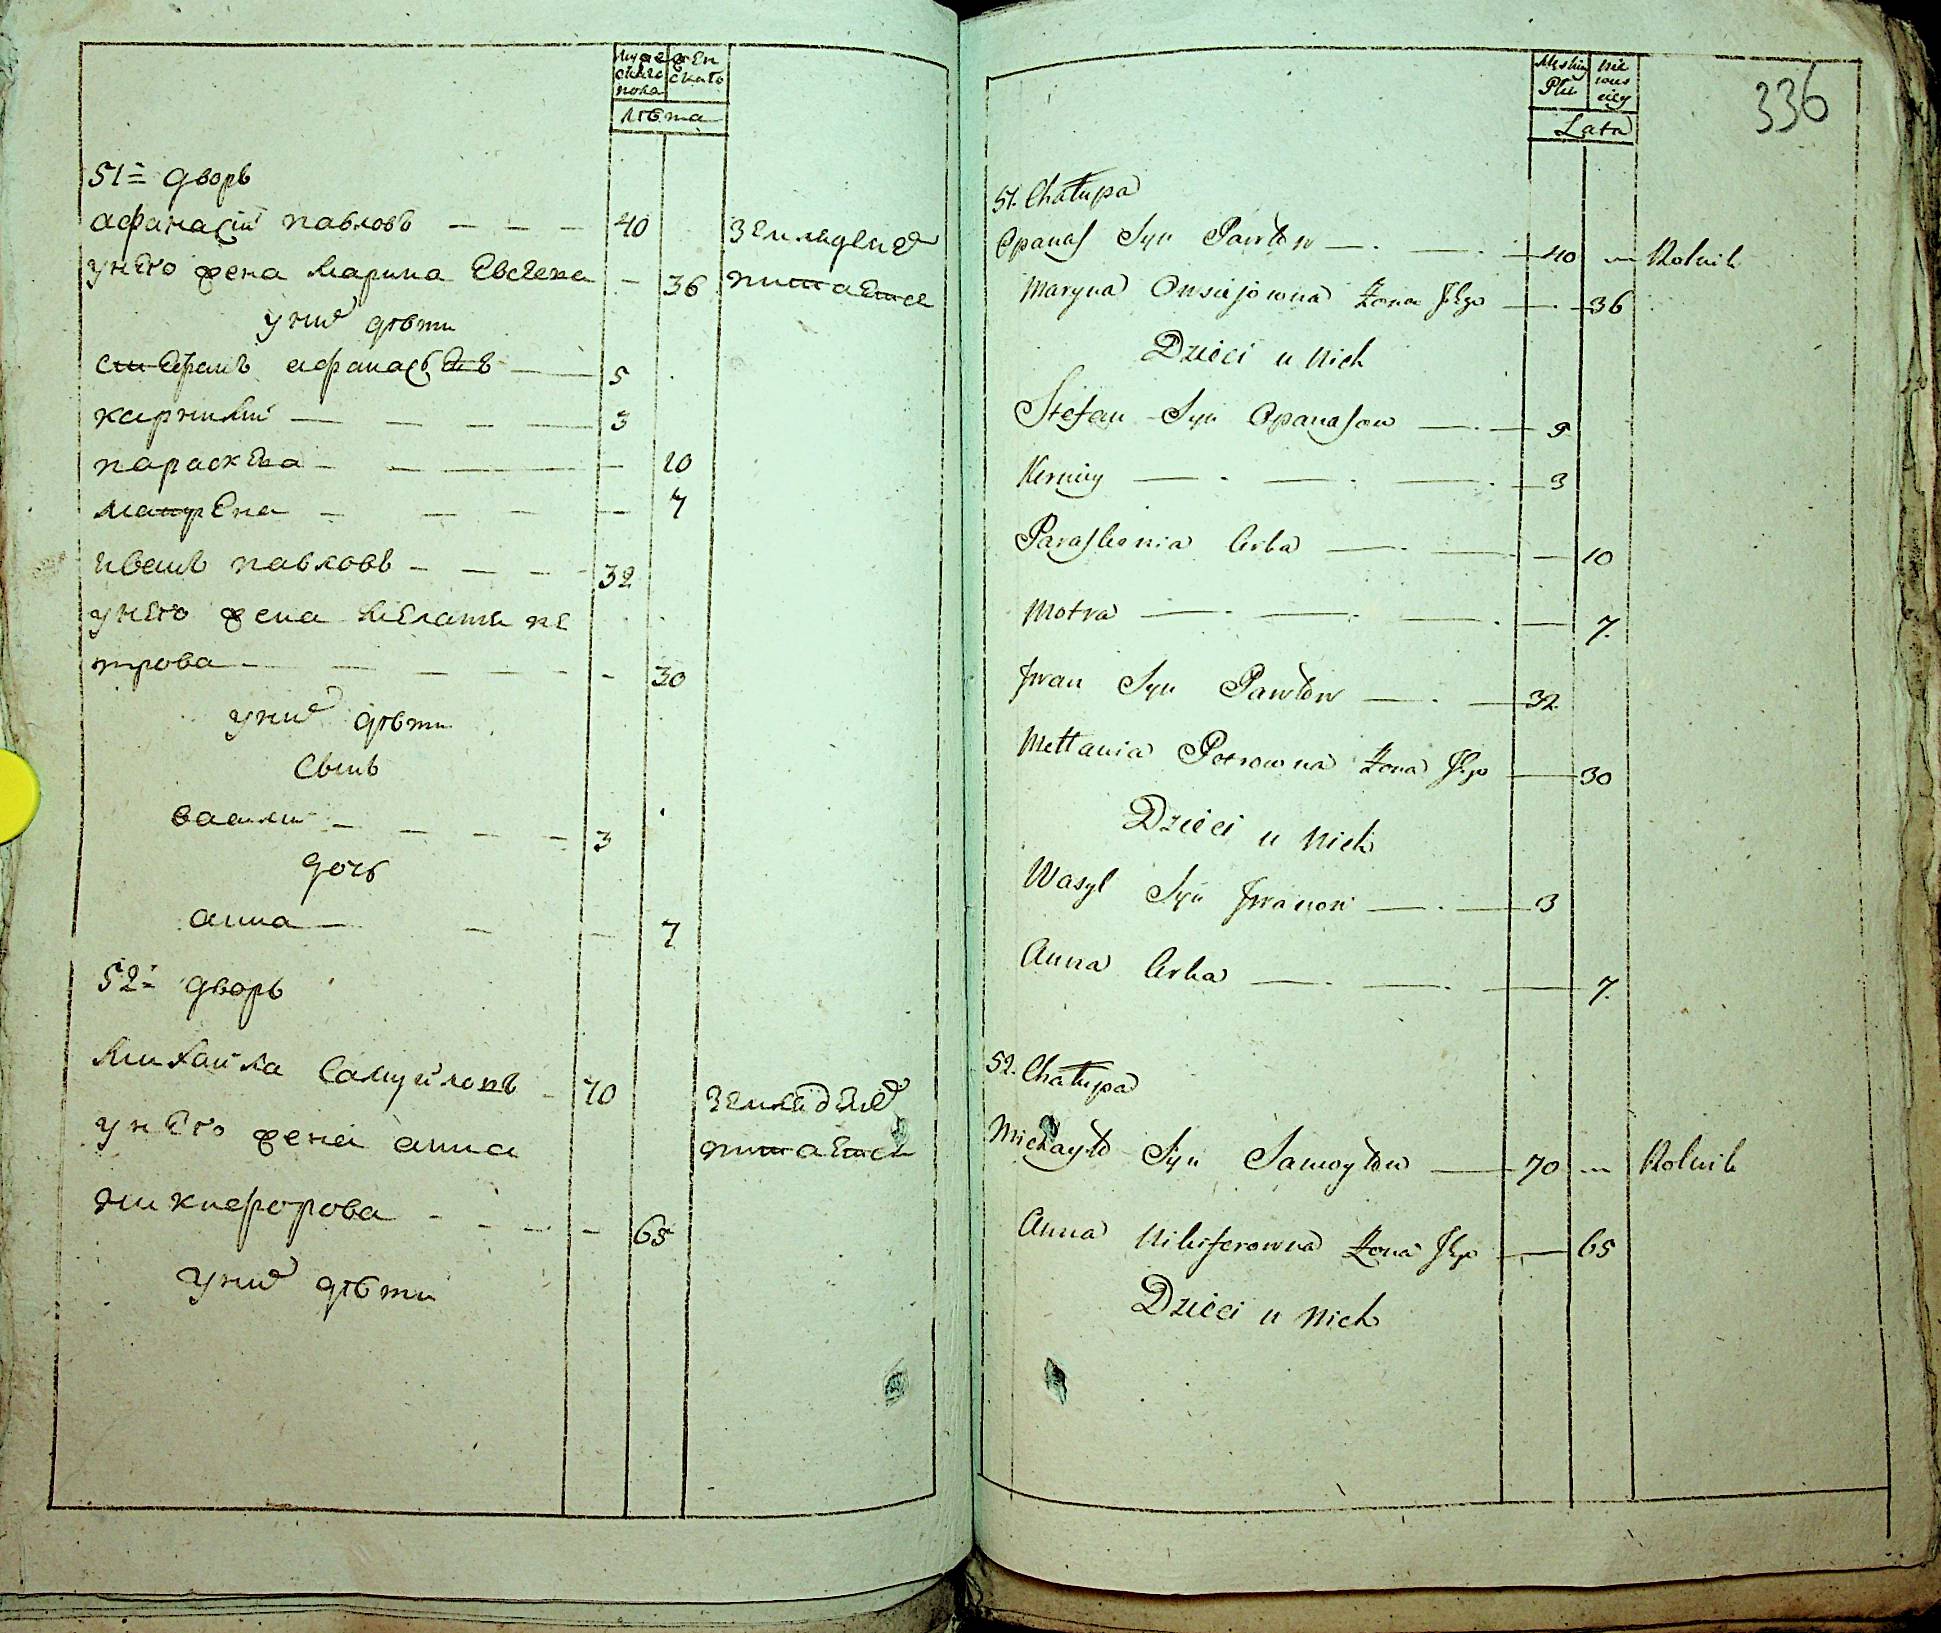 мужескаго пола
женскаго
лѣта
51й дворъ
афанасiй павловъ — — — 40 землѣделиемъ
унего жена марина Евсеева — 36 питается
уних дѣти
стефанъ афанасьевъ — 5
карнилий — — — 3
параскева — — — 10
матрена — — — 7
иванъ павловъ — — — 32
унего жена мелания пе
трова — — — 30
уних дѣти
сынъ
василий — — — 3
дочь
анна — — — 7
52й дворъ
михайла самуйловъ — 70 земледелием
унего жена анна питается
никифорова — — — 65
уних дѣти
Męskiey Płci
Niewieściey
Lata
336
51. Chałupa
Opanas Syn Pawłow — 40 — Rolnik
Maryna Owsiejowna Żona Jego — 36
Dzieci u Nich
Stefan Syn Opanasow — 5
Kerniey — 3
Paraskewia Corka — 10
Motra — 7.
Jwan Syn Pawłow — 32
Mełłania Petrowna Żona Jego — 30
Dzieci u Nich
Wasyl Syn Jwanow — 3
Anna Corka — 7.
52. Chałupa
Michayło Syn Samoyłow — 70 — Rolnik
Anna Nikiferowna Żona Jego — 65
Dzieci u Nich